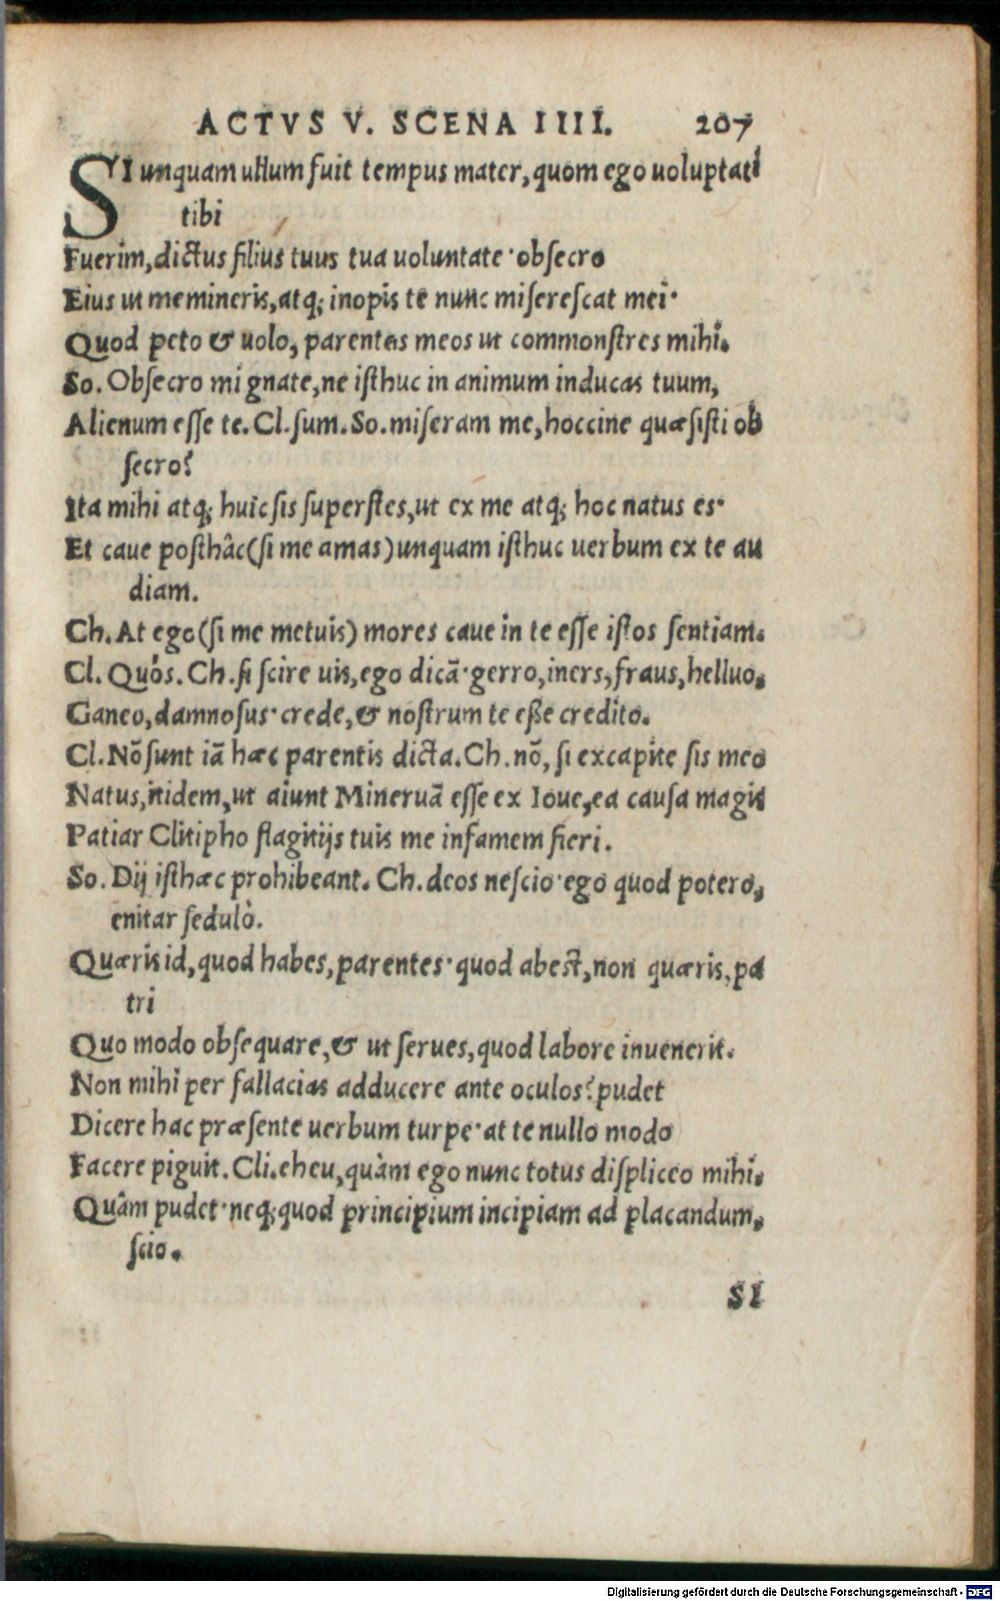 ACTVS V. SCENA IIII. 207
SI unquam ullum fuit tempus mater, quom ego uoluptati
tibi
Fuerim, dictus filius tuus tua uoluntate· obsecro
Eius ut memineris, atq; inopis te nunc miserescat mei·
Quod peto & uolo, parentes meos ut commonstres mihi.
So. Obsecro mi gnate, ne isthuc in animum inducas tuum,
Alienum esse te. Cl. sum. So. miseram me, hoccine quæsisti ob
secro?
Ita mihi atq; huic sis superstes, ut ex me atq; hoc natus es·
Et caue posthâc (si me amas) unquam isthuc uerbum ex te au
diam.
Ch. At ego (si me metuis) mores caue in te esse istos sentiam.
Cl. Quôs. Ch. si scire uis, ego dicã· gerro, iners, fraus, helluo,
Ganeo, damnosus· crede, & nostrum te esse credito.
Cl. Nõ sunt iã hæc parentis dicta. Ch. nõ, si ex capite sis meo
Natus, itidem, ut aiunt Mineruã esse ex Ioue, ea causa magis
Patiar Clitipho flagitijs tuis me infamem fieri.
So. Dij isthæc prohibeant. Ch. deos nescio· ego quod potero,
enitar sedulò.
Quæris id, quod habes, parentes· quod abest, non quæris, pa
tri
Quo modo obsequare, & ut serues, quod labore inuenerit.
Non mihi per fallacias adducere ante oculos? pudet
Dicere hac præsente uerbum turpe· at te nullo modo
Facere piguit. Cli. eheu, quàm ego nunc totus displiceo mihi.
Quâm pudet· neq; quod principium incipiam ad placandum,
scio.
SI
Digitalisierung gefördert durch die Deutsche Forschungsgemeinschaft - DFG